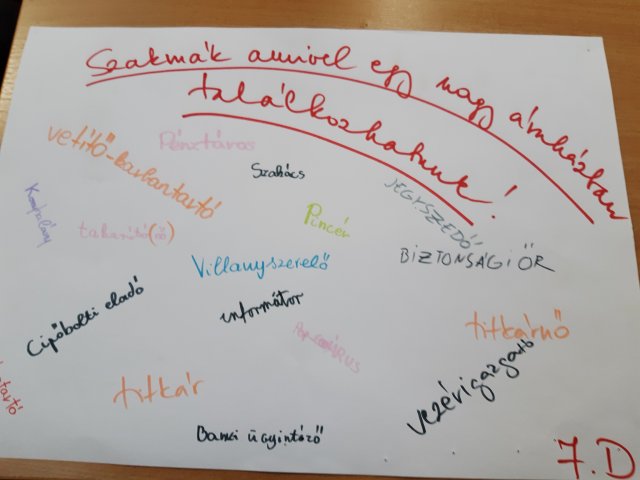 Szakmák amivel egy nagy áruházban
találkozhatunk!
vetítő-karbantartó
Pénztáros
Szakács
JEGYSZEDŐ
takarító(nő)
Pincér
Villanyszerelő
BIZTONSÁGI ŐR
Cipőbolti eladó
informátor
titkárnő
titkár
vezérigazgató
Banki ügyintéző
7.D